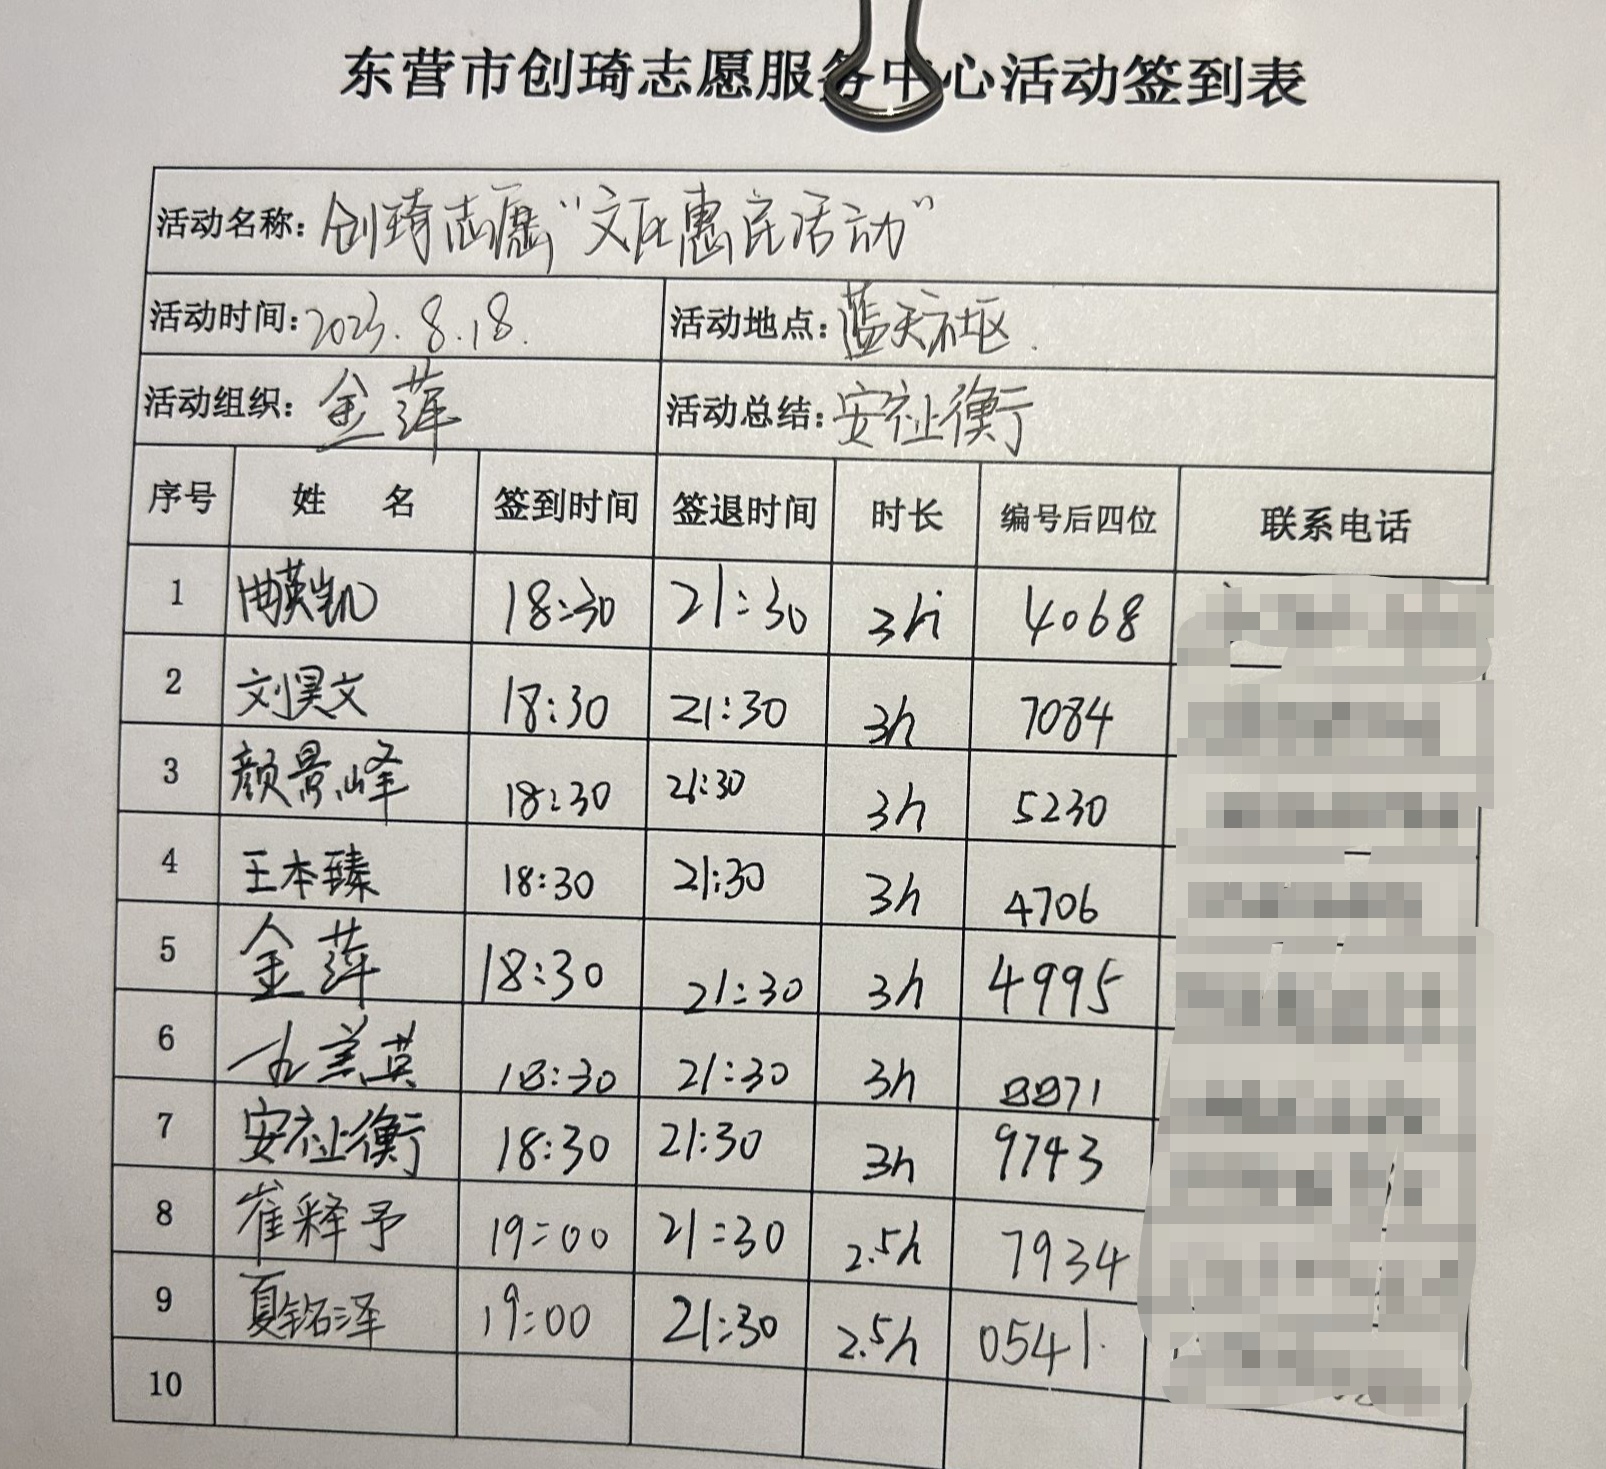 东营市创琦志愿服务中心活动签到表
活动名称：创琦志愿“文化惠民活动”
活动时间：2023.8.18. 活动地点：蓝天社区.
活动组织：金萍 活动总结：安祉衡
序号 姓 名 签到时间 签退时间 时长 编号后四位 联系电话
1 曲英凯 18:30 21:30 3h 4068
2 刘昊文 18:30 21:30 3h 7084
3 颜景峰 18:30 21:30 3h 5230
4 王本臻 18:30 21:30 3h 4706
5 金萍 18:30 21:30 3h 4995
6 美英 18:30 21:30 3h 8871
7 安祉衡 18:30 21:30 3h 9743
8 崔释予 19:00 21:30 2.5h 7934
9 夏铭泽 19:00 21:30 2.5h 0541.
10